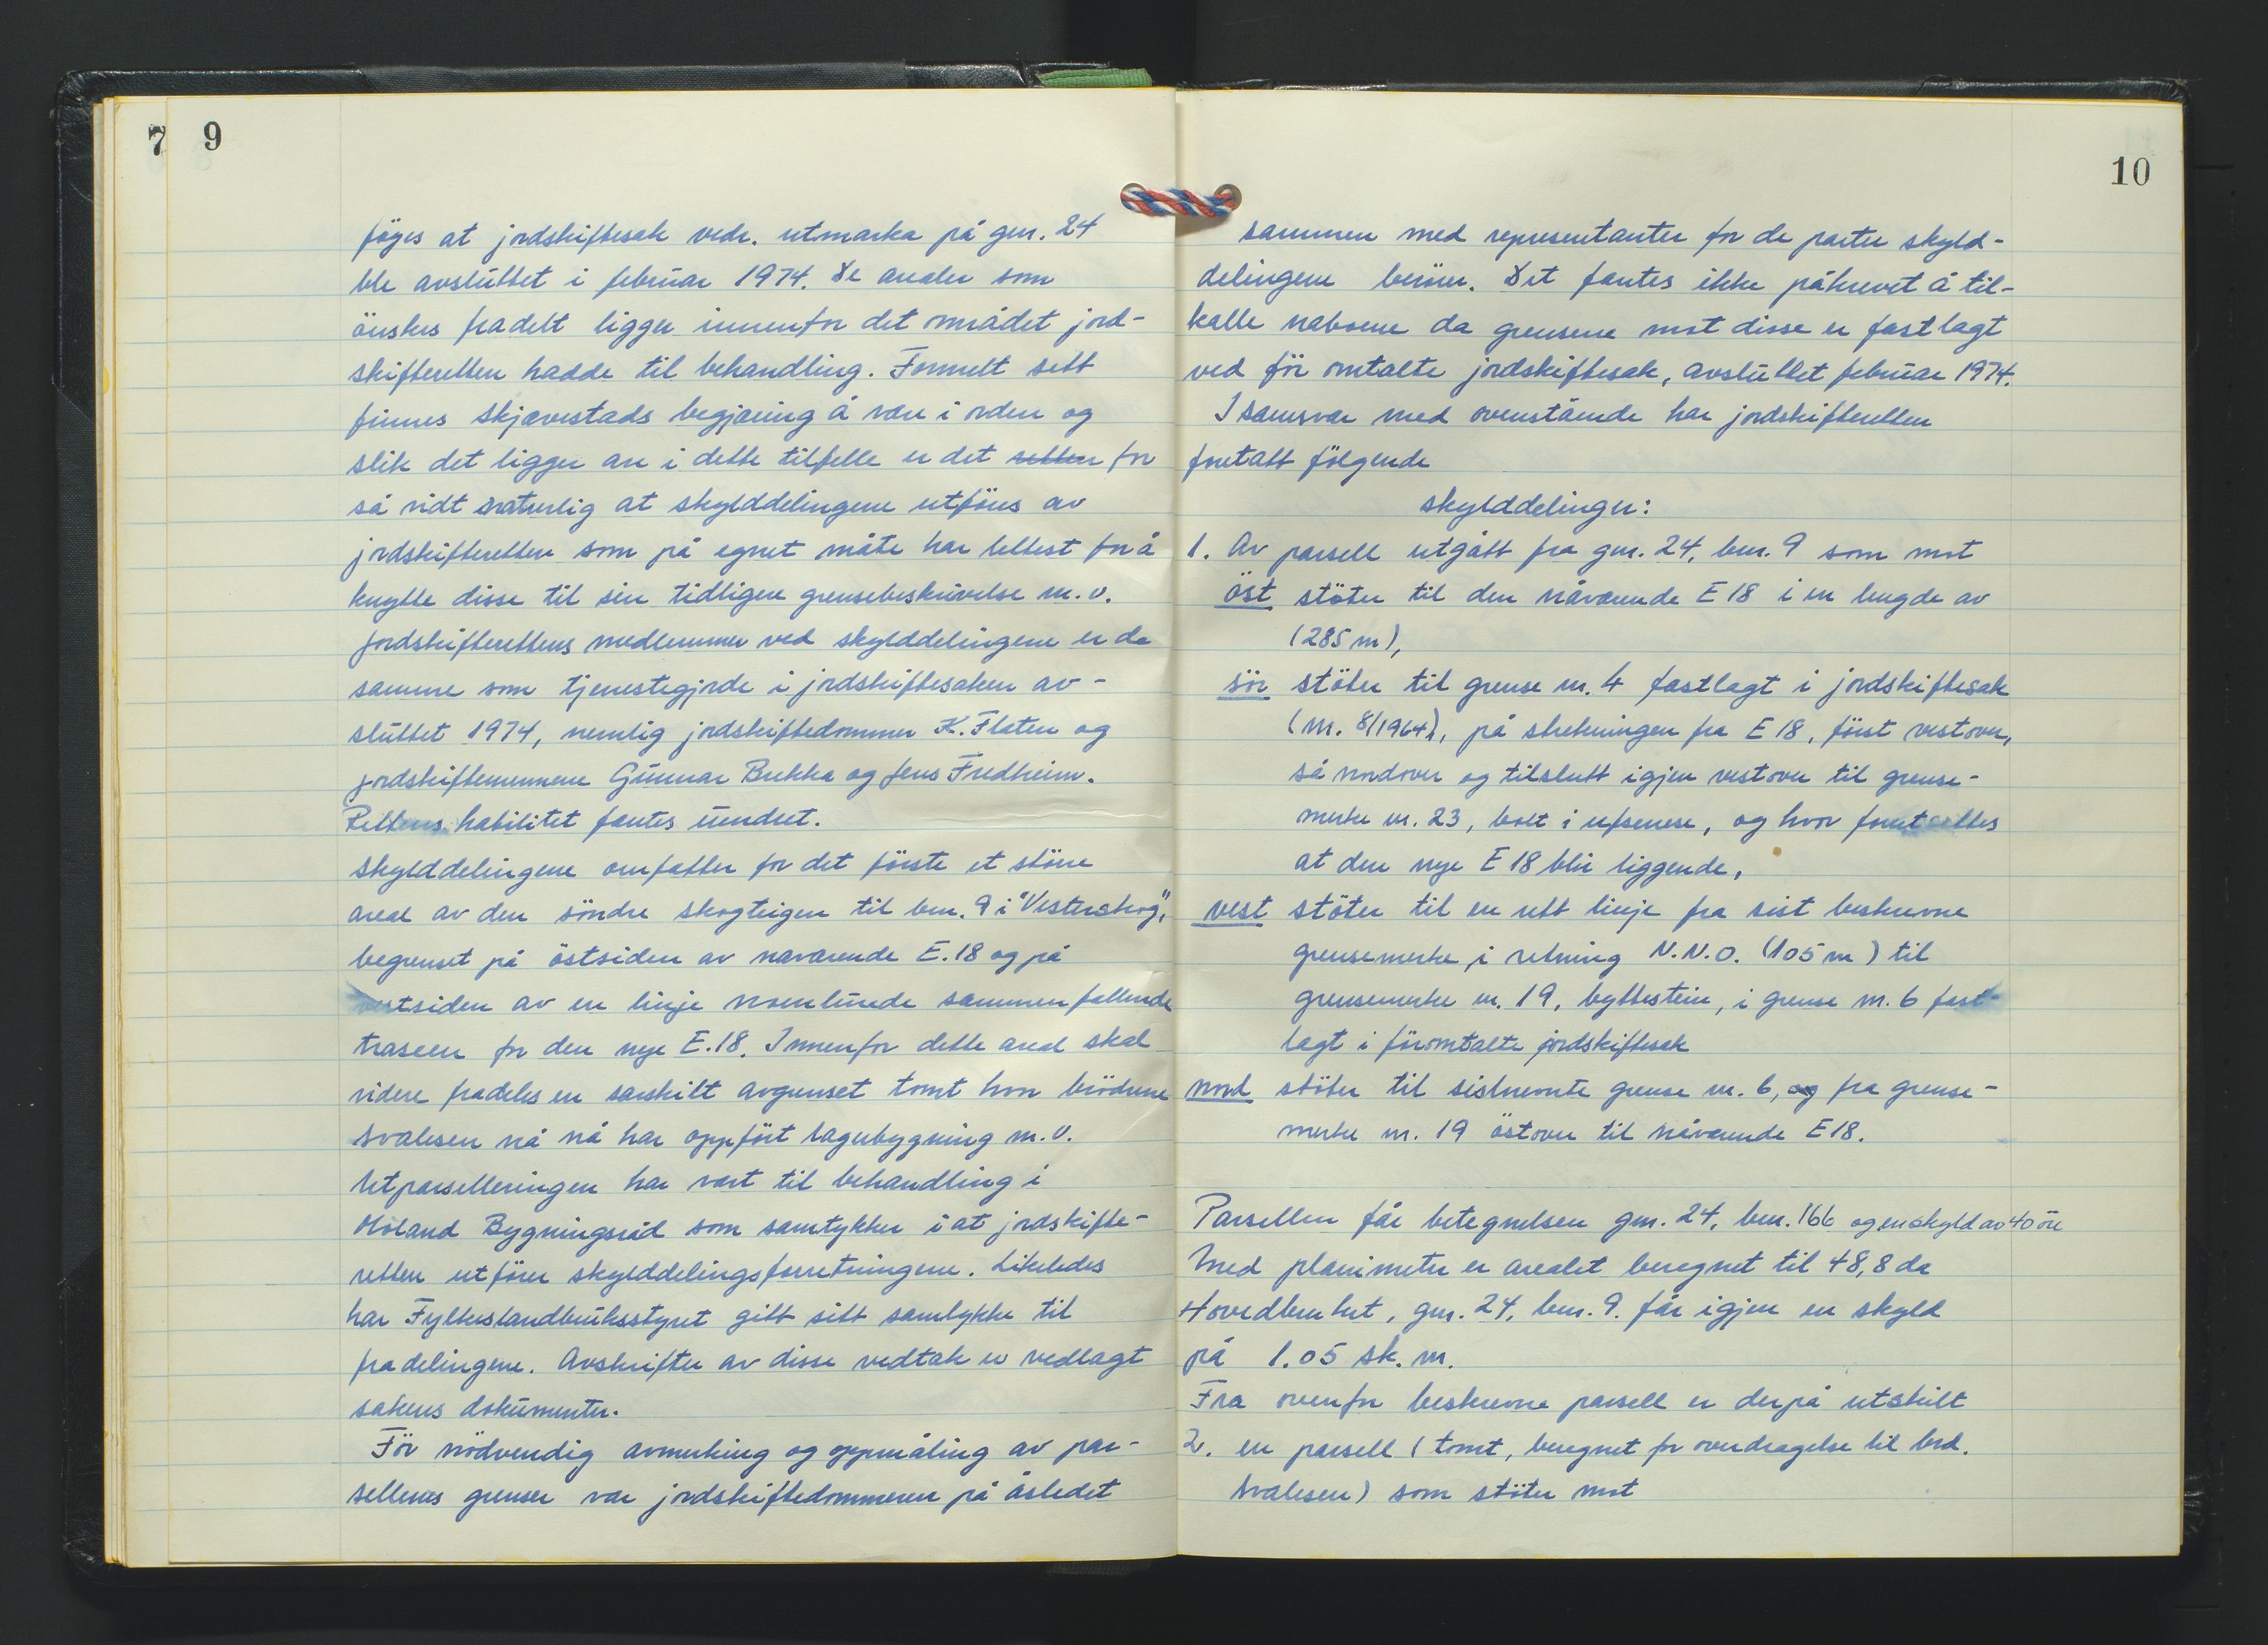 7 9
föyes at jordskiftesak vedr. utmarka på gnr. 24
ble avsluttet i februar 1974. De arealer som
önskes fradelt ligger innenfor det området jord-
skifteretten hadde til behandling. Formelt sett
finnes Skjævestads begjæring å være i orden og
slik det ligger an i dette tilfelle er det retten for
så vidt naturlig at skylddelingene utföres av
jordskifteretten som på egnet måte har lettest for å
knytte disse til sin tidligere grensebeskrivelse m.v.
Jordskifterettens medlemmer ved skylddelingene er de
samme som tjenestegjorde i jordskiftesaken av-
sluttet 1974, nemlig jordskiftedommer K. Flaten og
jordskiftemennene Gunnar Brekka og Jens Fredheim.
Rettens habilitet fantes uendret.
Skylddelingene omfatter for det förste et större
areal av den söndre skogteigen til bnr. 9 i "Vesterskog",
begrenset på östsiden av naværende E.18 og på
vestsiden av en linje noenlunde sammenfallende
traseen for den nye E.18. Innenfor dette areal skal
videre fradeles en særskilt avgrenset tomt hvor brödrene
Svalesen nå nå har oppfört lagerbygning m.v.
Utparselleringen har vært til behandling i
Våland Bygningsråd som samtykker i at jordskifte-
retten utförer skylddelingsforretningene. Likeledes
har Fylkeslandbruksstyret gitt sitt samtykke til
fradelingene. Avskrifter av disse vedtak er vedlagt
sakens dokumenter.
För nödvendig avmerking og oppmåling av par-
sellenes grenser var jordskiftedommeren på åstedet
10
sammen med representanter for de parter skyld-
delingene berörer. Det fantes ikke påkrevet å til-
kalle naboene da grensene mot disse er fastlagt
ved för omtalte jordskiftesak, avsluttet februar 1974.
I samsvar med ovenstående har jordskifteretten
foretatt fölgende
skylddelinger:
1. Av parsell utgått fra gnr. 24, bnr. 9 som mot
öst stöter til den nåværende E 18 i en lengde av
(285 m),
sör stöter til grense nr. 4 fastlagt i jordskiftesak
(nr. 8/1964), på strekningen fra E 18, först vestover,
så nordover og tilslutt igjen vestover til grense-
merke nr. 23, bolt i ufsenese, og hvor forutsettes
at den nye E 18 blir liggende,
vest stöter til en rett linje fra sist beskrevne
grensemerke i retning N.N.O. (105 m) til
grensemerke nr. 19, byttestein, i grense nr. 6 fast-
lagt i föromtalte jordskiftesak
nord stöter til sistnevnte grense nr. 6, og fra grense-
merke nr. 19 östover til nåværende E 18.
Parsellen får betegnelsen gnr. 24, bnr. 166 og en skyld av 40 öre
Med planimeter er arealet beregnet til 48,8 da
Hovedbruket, gnr. 24, bnr. 9. får igjen en skyld
på 1.05 sk. m.
Fra ovenfor beskrevne parsell er derpå utskilt
2. en parsell (tomt, beregnet for overdragelse til brd.
Svalesen) som stöter mot